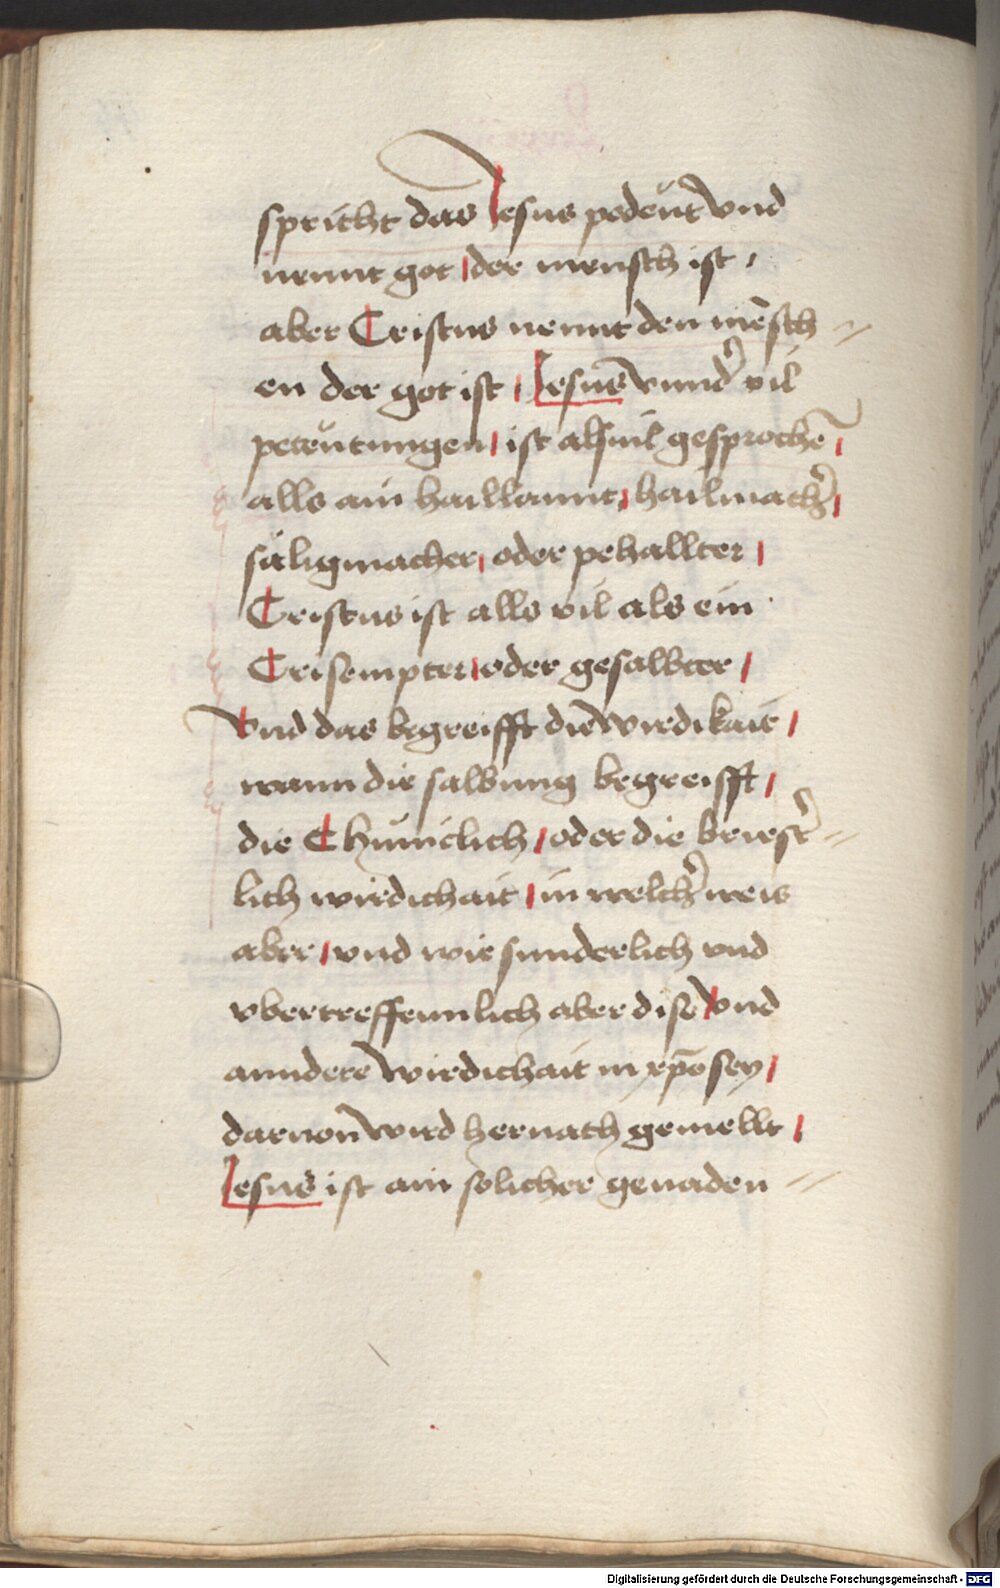 spricht das Jesus pedeüt vnd
nennt got | der mensch ist ·
aber Cristus nennt den mēsch //
en der got ist | Jesus vnnd̛ vil
peteütungen | ist alsuil gesprochē |
alls ain haillannt | hailmach̛ |
säligmacher | oder pehallter |
Cristus ist alls vil als ein
Crisempter | oder gesalbter |
Vnd das begreifft die wirdikait |
wann die salbung begreifft |
die Chüniclich | oder die briest̛ //
lich wirdichait | in welch̛ weis
aber | vnd wie sunderlich vnd
vbertreffennlich aber dise vnd
anndere wirdichait in xp̄o sey |
daruon wird hernach gemellt |
Jesus ist ain solicher genaden //
Digitalisierung gefördert durch die Deutsche Forschungsgemeinschaft - DFG